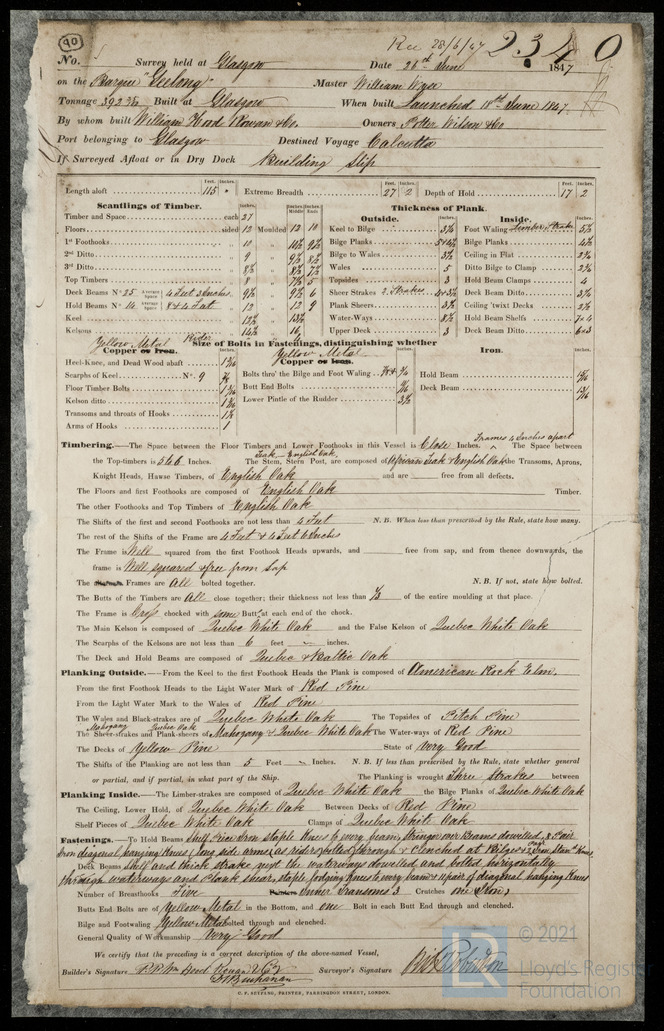 90
Rec 28/6/47 2340
No. Survey held at Glasgow Date 26th June 1847
on the Barque "Geelong" Master William Wyse
Tonnage 392 Built at Glasgow When built Launched 18th June 1847
By whom built William Hood Rowan & Co. Owners Potter Wilson & Co
Port belonging to Glasgow Destined Voyage Calcutta
If Surveyed Afloat or in Dry Dock Building Slip
Feet. Inches. Feet. Inches. Feet. Inches.
Length aloft 115 Extreme Breadth 27 2 Depth of Hold 17 2
Scantlings of Timber. Thickness of Plank.
Outside. Inside.
Timber and Space each 27
Floors sided 12 Moulded 12 10 Keel to Bilge Foot Waling Limber Strake
1st Foothooks 10 Bilge Planks Bilge Planks
2nd Ditto 9 Bilge to Wales Ceiling in Flat
3rd Ditto Wales 5 Ditto Bilge to Clamp
Top Timbers 8 Topsides 3 Hold Beam Clamps 4
Deck Beams No 25 Average Space 4 Feet 3 Inches Sheer Strakes 2 Strakes Ceiling 'twixt Decks
Hold Beams No 14 Average Space 8 & 4 Feat 12 12 9 Plank Sheers Hold Beam Shelfs 7 × 4
Keel Water-Ways Deck Beam Ditto 6×3
Kelsons 16 Upper Deck 3
Yellow Metal Rider Size of Bolts in Fastenings, distinguishing whether
Copper or Iron. Yellow Metal Copper or Iron. Iron.
Heel-Knee, and Dead Wood abaft Bolts thro' the Bilge and Foot Waling Hold Beam
Scarphs of Keel No. 9 Butt End Bolts Deck Beam
Floor Timber Bolts Lower Pintle of the Rudder
Kelson ditto
Transoms and throats of Hooks
Arms of Hooks 1
Timbering.—The Space between the Floor Timbers and Lower Foothooks in this Vessel is Close Inches. Frames 4 Inches apart The Space between
the Top-timbers is 5 & 6 Inches. The Stem, Stern Post, are composed of Teak English Oak African Teak & English Oak the Transoms, Aprons,
Knight Heads, Hawse Timbers, of English Oak and are free from all defects.
The Floors and first Foothooks are composed of English Oak Timber.
The other Foothooks and Top Timbers of English Oak
The Shifts of the first and second Foothooks are not less than 4 Feet N.B. When less than prescribed by the Rule, state how many.
The rest of the Shifts of the Frame are 4 Feet & 4 Feet 6 Inches
The Frame is Well squared from the first Foothook Heads upwards, and free from sap, and from thence downwards, the
frame is Well squared & free from Sap
The Frames are All bolted together. N.B. If not, state how bolted.
The Butts of the Timbers are All close together; their thickness not less than 1/3 of the entire moulding at that place.
The Frame is Cross chocked with some Butt at each end of the chock.
The Main Kelson is composed of Quebec White Oak and the False Kelson of Quebec White Oak
The Scarphs of the Kelsons are not less than 6 feet inches.
The Deck and Hold Beams are composed of Quebec & Baltic Oak
Planking Outside.—From the Keel to the first Foothook Heads the Plank is composed of American Rock Elm.
From the first Foothook Heads to the Light Water Mark of Red Pine
From the Light Water Mark to the Wales of Red Pine
The Wales and Black-strakes are of Quebec White Oak The Topsides of Pitch Pine
Mahogany Quebec Oak
The Sheer-strakes and Plank-sheers of Mahogany & Quebec White Oak The Water-ways of Red Pine
The Decks of Yellow Pine State of Very Good
The Shifts of the Planking are not less than 5 Feet Inches. N.B. If less than prescribed by the Rule, state whether general
or partial, and if partial, in what part of the Ship. The Planking is wrought Three Strakes between
Planking Inside.—The Limber-strakes are composed of Quebec White Oak the Bilge Planks of Quebec White Oak
The Ceiling, Lower Hold, of Quebec White Oak Between Decks of Red Pine
Shelf Pieces of Quebec White Oak Clamps of Quebec White Oak
Fastenings.—To Hold Beams Shelf Piece Iron staple Knees to every beam, Stringer over Beams dowelled, & Pair
Iron diagonal hanging Knees (long side arms) as riders bolted through & clenched at Bilges
Deck Beams Shelf and thick strake next the waterways dowelled and bolted horizontally
through waterways and Plank shear, staple lodging Knees to every beam & pair of diagonal hanging Knees
Number of Breasthooks Five Inner Transoms 3 Crutches one Iron
Butts End Bolts are of Yellow Metal in the Bottom, and one Bolt in each Butt End through and clenched.
Bilge and Footwaling Yellow Metal bolted through and clenched.
General Quality of Workmanship Very Good
We certify that the preceding is a correct description of the above-named Vessel,
Builder's Signature Surveyor's Signature
C. F. SEYFANG, PRINTER, FARRINGDON STREET, LONDON.
LR © 2021
Lloyd's Register
Foundation